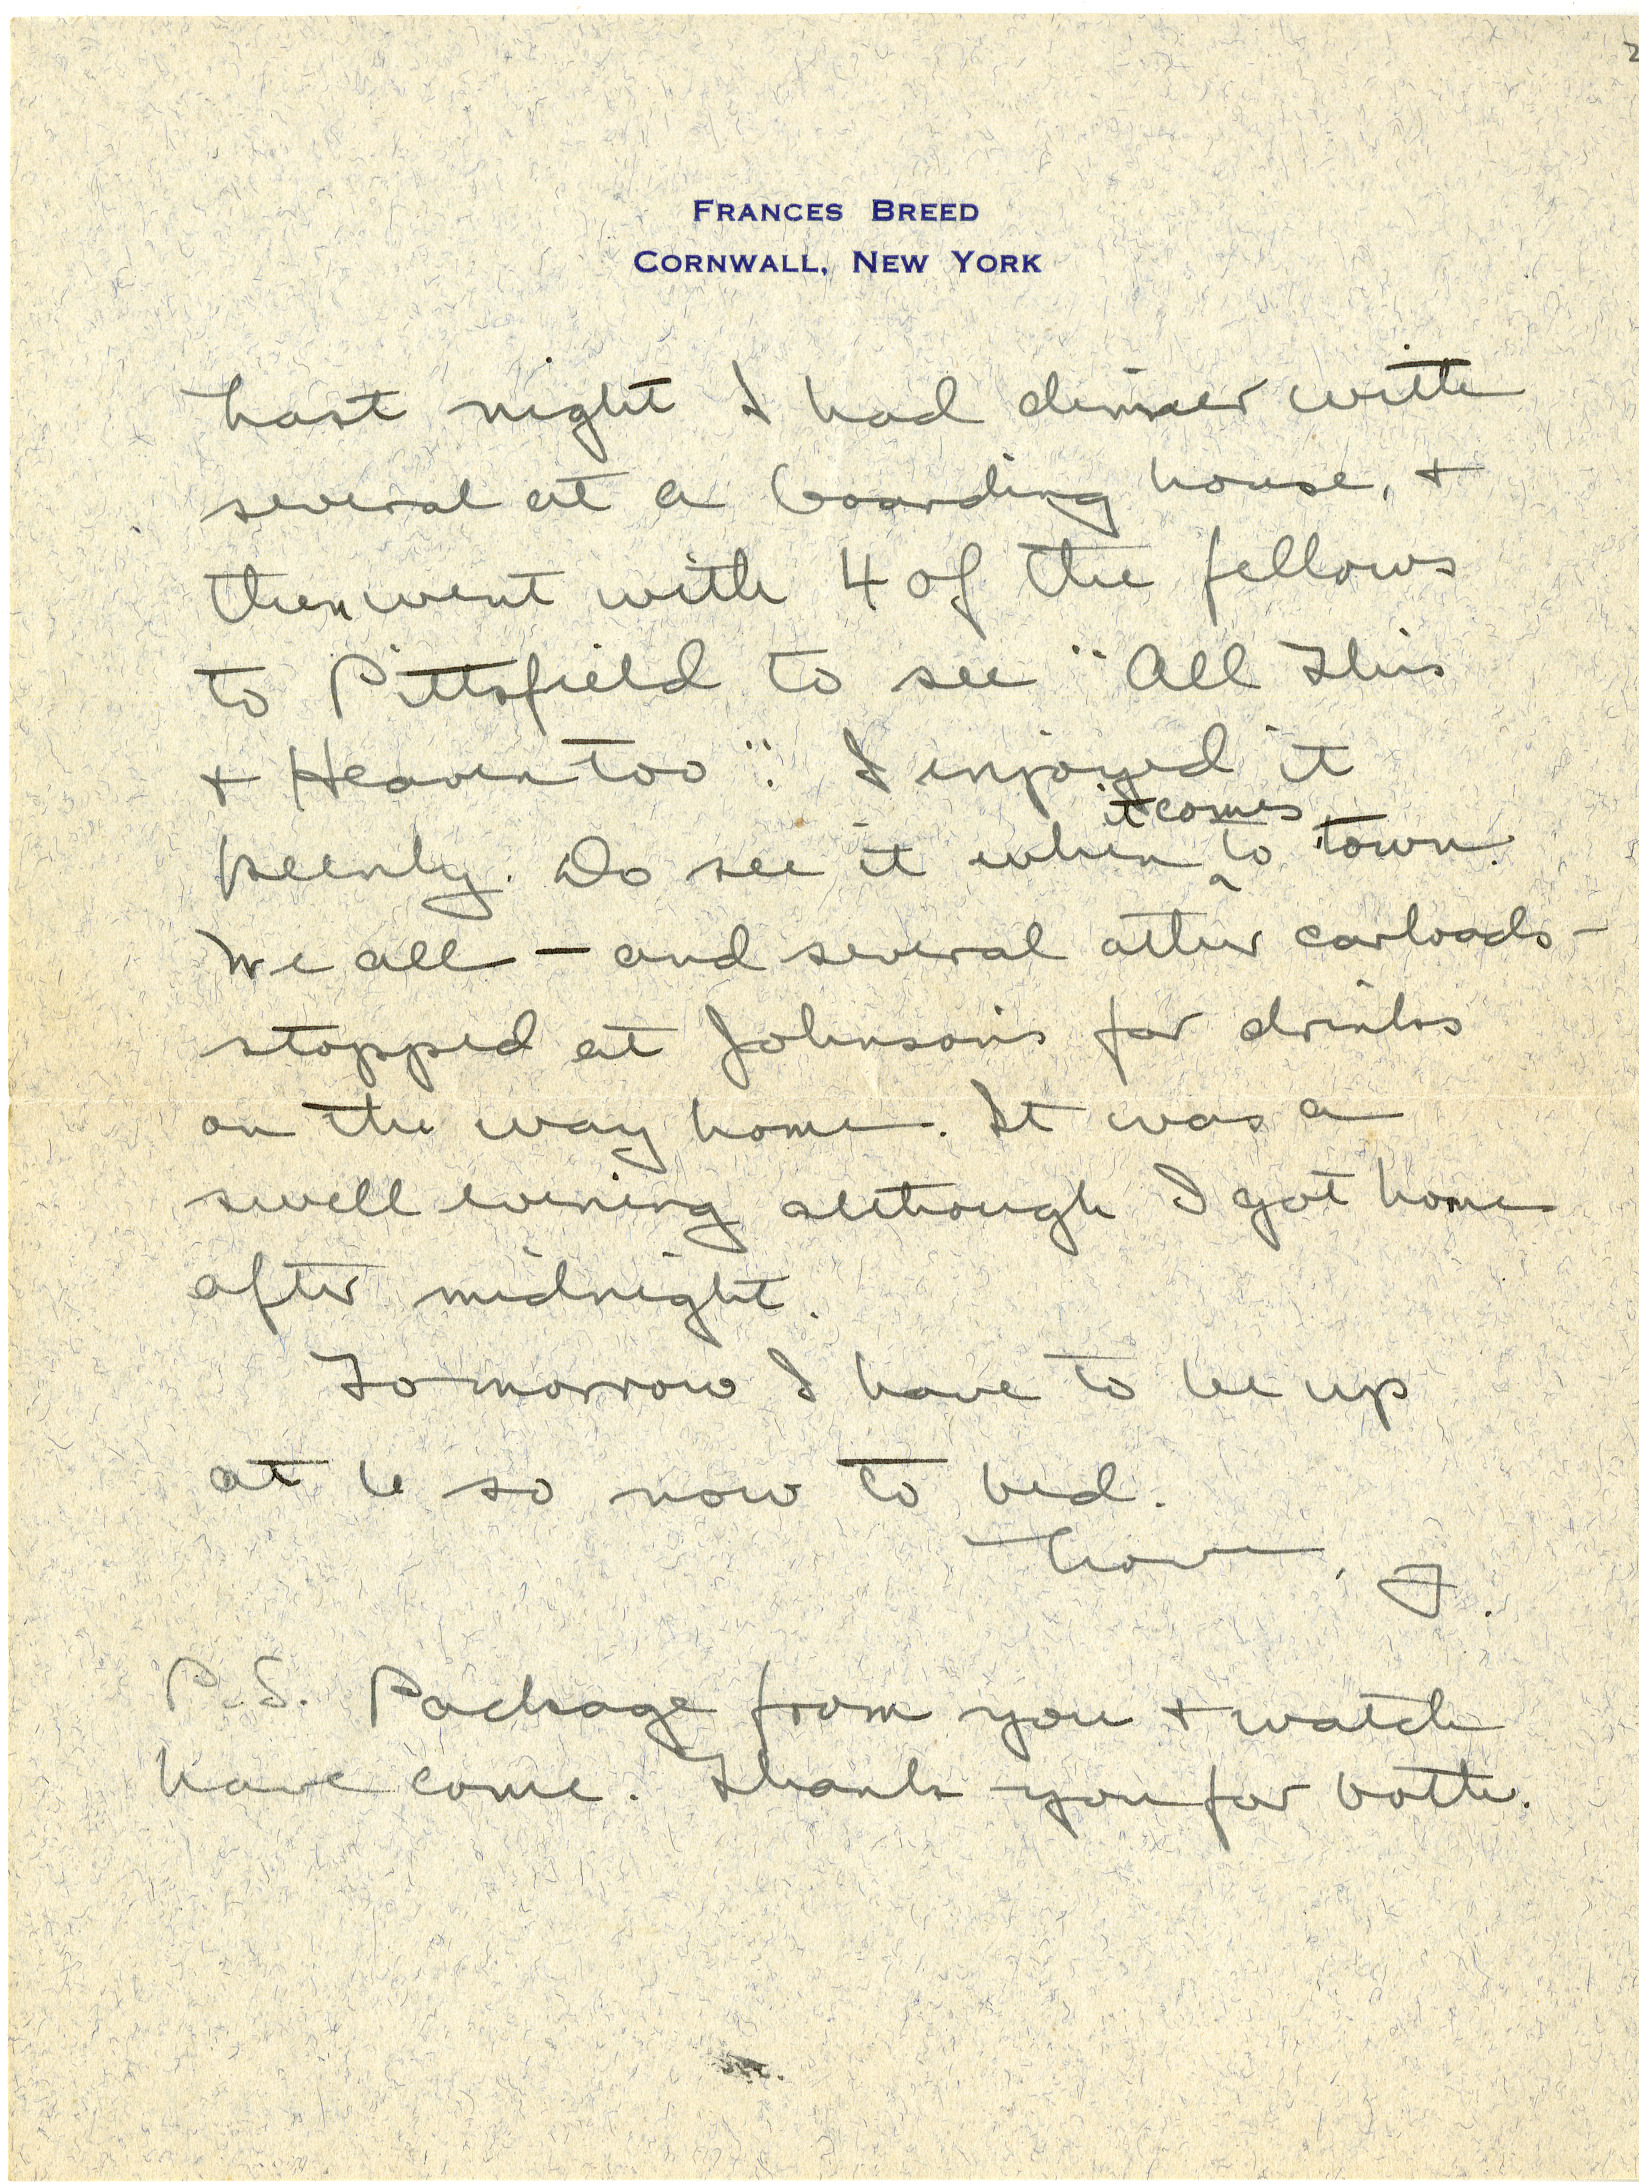 2
FRANCES BREED
CORNWALL, NEW YORK
Last night I had dinner with
several at a boarding house, +
then went with 4 of the fellows
to Pittsfield to see "All This
+ Heaven Too". I enjoyed it
it comes
keenly. Do see it when ^ to town.
We all — and several other carloads —
stopped at Johnson's for drinks
on the way home. It was a
swell evening although I got home
after midnight.
Tomorrow I have to be up
at 6 so now to bed.
Love, F.
P.S. Package from you + watch
have come. Thank you for both.